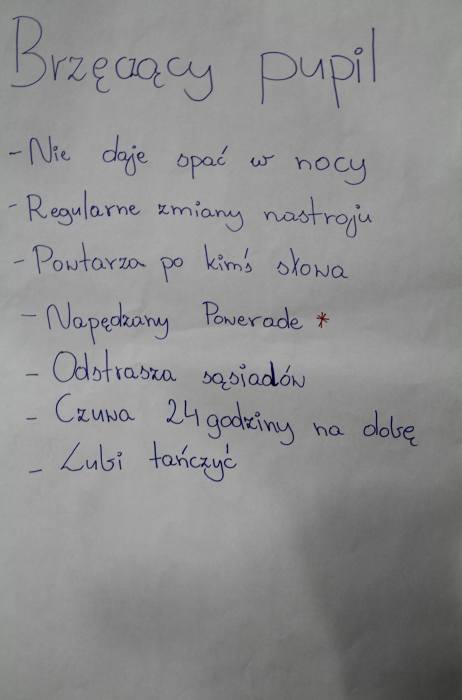 Brzęczący pupil
- Nie daje spać w nocy
- Regularne zmiany nastroju
- Powtarza po kimś słowa
- Napędzany Powerade *
- Odstrasza sąsiadów
- Czuwa 24 godziny na dobę
- Lubi tańczyć